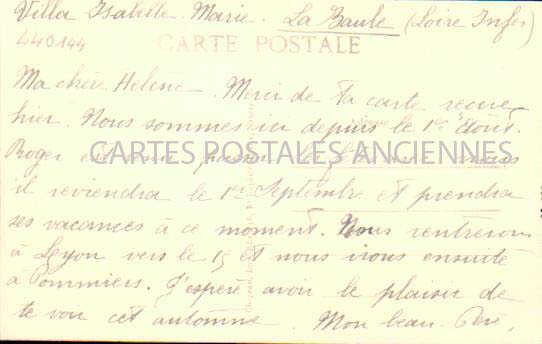 Villa Isabelle-Marie. La Baule (Loire Infer)
440144
CARTE POSTALE
Ma chère Helene. Merci de ta carte recue
hier. Nous sommes ici depuis le 1er Août.
Roger est venu passer le mais
CARTES POSTALES ANCIENNES
il reviendra le 1er Septembre et prendra
ses vacances à ce moment. Nous rentrerons
à Lyon vers le 15 et nous irons ensuite
à Pommiers. J'espère avoir le plaisir de
te voir cet automne. Mon beau-Père,